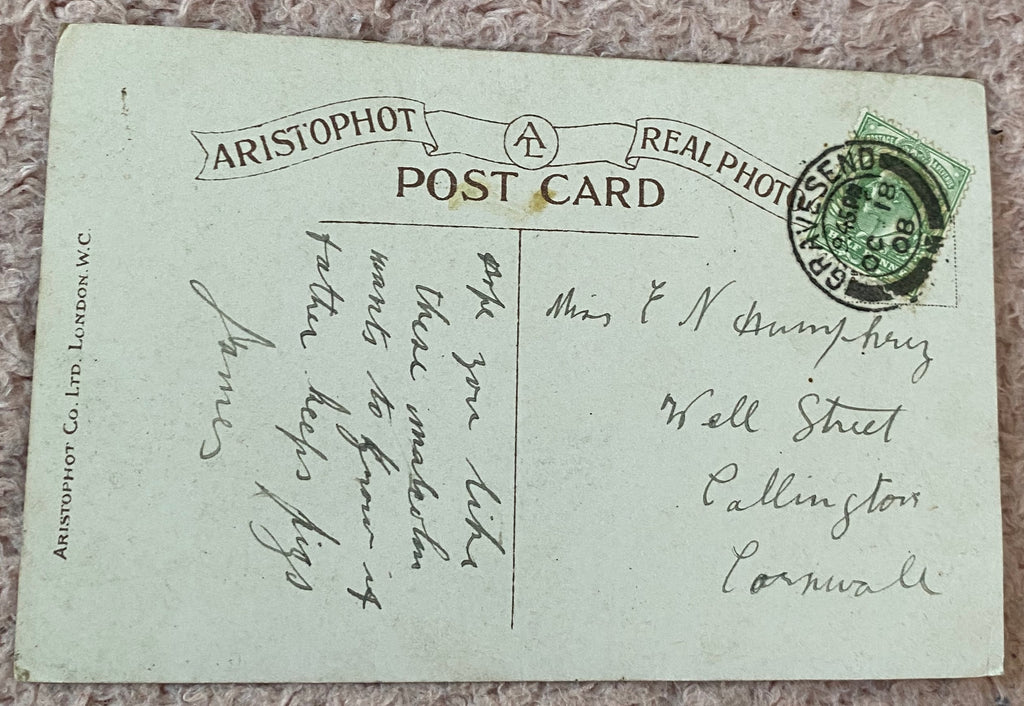 ARISTOPHOT AL REAL PHOTO
POST CARD
GRAVESEND
9.45 PM
OC 18
08
Hope you like
these malcolm
wants to know if
father keeps pigs
James
Miss F N Humphrey
Well Street
Callington
Cornwall
ARISTOPHOT CO. LTD. LONDON. W.C.